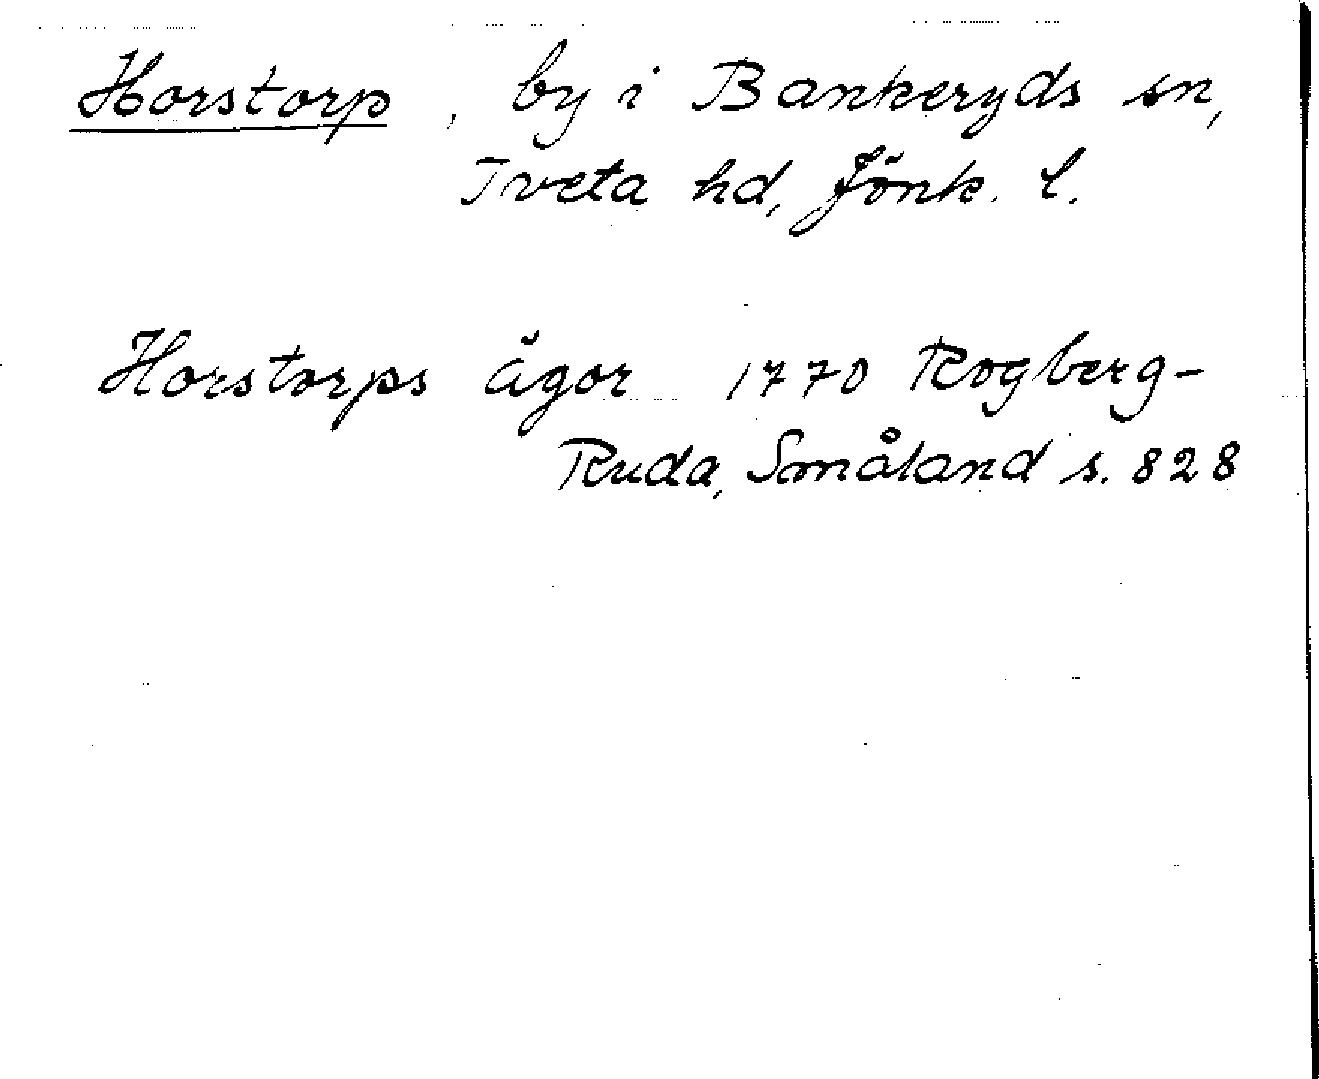 Horstorp, by i Bankeryds sn,
Tveta hd, Jönk. l.
Horstorps ägor 1770 Rogberg-
Ruda, Småland s. 828